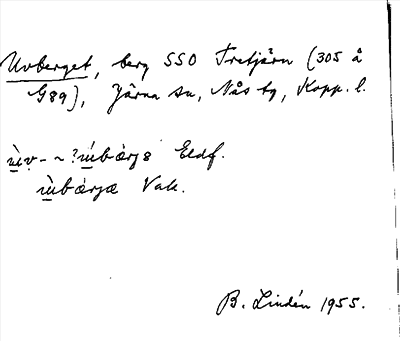 Uvberget, berg SSO Tretjärn (305 å
G89), Järna sn, Nås tg, Kopp. l.
ù̲v- ~ ?ú̲bæ̀rjɜ Eldf.
ù̲bæ̀rjæ Vak.
B. Lindén 1955.